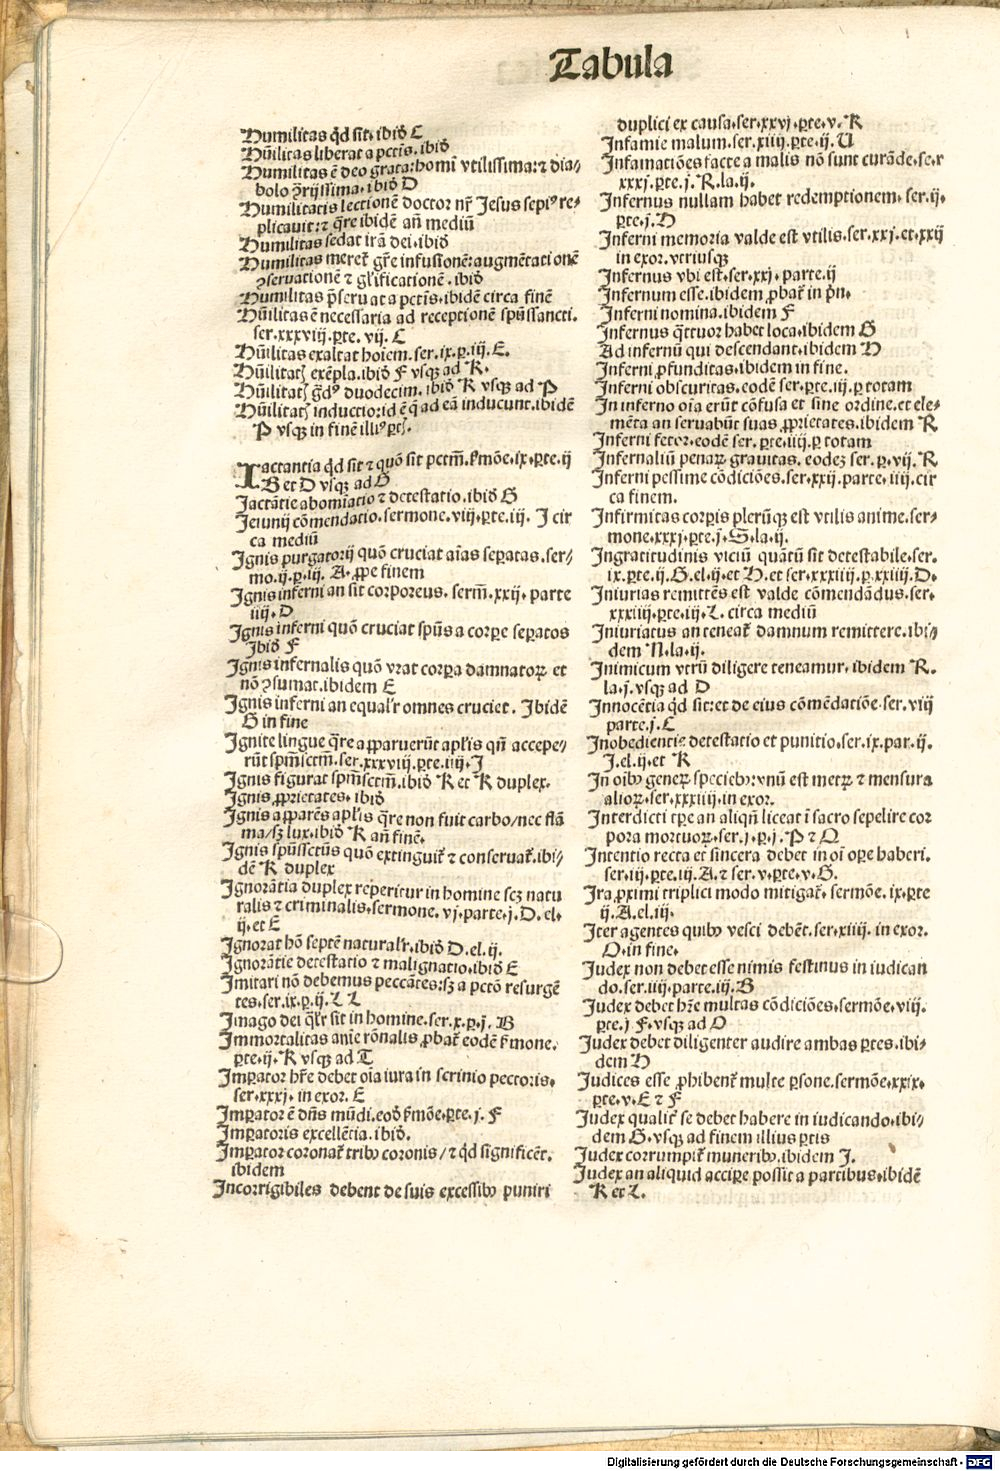 Tabula
Humilitas qd sit. ibid C
Hūilitas liberat a pctis. ibid
Humilitas ē deo grata: homī vtilissima: ⁊ dia-
bolo ꝯrijssima. ibid D
Humilitatis lectionē doctor nr̄ Jesus sepiꝰ re-
plicauit: ⁊ qre ibidē an̄ mediū
Humilitas sedat irā dei. ibid
Humilitas meret̄ gr̄e infusionē: augmētationē
ꝯseruationē ⁊ gl'ificationē. ibid
Humilitas p̄seruat a pctis. ibidē circa finē
Hūilitas ē necessaria ad receptionē spūssancti.
ser. xxxviij. ꝑte. vij. C
Hūilitas exaltat hoiem. ser. ix. ꝑ. iij. E.
Hūilitatꝭ exēpla. ibid F vsqꝫ ad K.
Hūilitatꝭ gͣdꝰ duodecim. ibid K vsqꝫ ad P
Hūilitatꝭ inductio: id ē q̄ ad eā inducunt. ibidē
P vsqꝫ in finē illiꝰ ꝑtꝭ.
Iactantia qd sit ⁊ quō sit pctm̄. ẜmōe. ix. ꝑte. ij
B et D vsqꝫ ad G
Jactātie abomīatio ⁊ detestatio. ibid G
Jeiunij cōmendatio. sermone. viij. ꝑte. iij. J cir
ca mediū
Ignis purgatorij quō cruciat aīas seꝑatas. ser-
mo. ij. ꝑ. iij. A. ꝓpe finem
Ignis inferni an sit corporeus. serm̄. xxij. parte
iiij. D
Ignis inferni quō cruciat spūs a corꝑe seꝑatos
Ibid F
Ignis infernalis quō vrat corꝑa damnatoꝝ et
nō ꝯsumat. ibidem E
Ignis inferni an equalr̄ omnes cruciet. Ibidē
G in fine
Ignite lingue qre apparuerūt apl'is qn̄ accepe-
rūt spm̄sctm̄. ser. xxxviij. ꝑte. iiij. J
Ignis figurat spm̄sctm̄. ibid K et K duplex.
Ignis ꝓprietates. ibid
Ignis apparēs apl'is qre non fuit carbo/nec flā
ma/sꝫ lux. ibid K an̄ finē.
Ignis spūssctus quō extinguit̄ ⁊ conseruat̄. ibi-
dē K duplex
Ignorātia duplex reperitur in homine scꝫ natu
ralis ⁊ criminalis. sermone. vj. parte. j. D. el.
ij. et E
Ignorat hō septē naturalr̄. ibid D. el. ij.
Ignorātie detestatio ⁊ malignatio. ibid E
Imitari nō debemus peccātes: sꝫ a pctō resurgē
tes. ser. ix. ꝑ. ij. L L
Imago dei qlr̄ sit in homine. ser. x. ꝑ. j. B
Immortalitas anīe rōnalis ꝓbat̄ eodē ẜmone.
ꝑte. ij. K vsqꝫ ad T
Imꝑator hr̄e debet oīa iura in scrinio pectoris.
ser. xxxj. in exor. E
Imꝑator ē dn̄s mūdi. eod ẜmōe. ꝑte. j. F
Imꝑatoris excellētia. ibid.
Imꝑator coronat̄ tribꝫ coronis/ ⁊ qd significēt.
ibidem
Incorrigibiles debent de suis excessibꝫ puniri
duplici ex causa. ser. xxvj. ꝑte. v. K
Infamie malum. ser. xiiij. ꝑte. ij. U
Infamatiōes facte a malis nō sunt curāde. ser
xxxj. ꝑte. j. R. la. ij.
Infernus nullam habet redemptionem. ser. ij.
ꝑte. j. H
Inferni memoria valde est vtilis. ser. xxj. et. xxij
in exor. vtriusqꝫ
Infernus vbi est. ser. xxj. parte. ij
Infernum esse. ibidem ꝓbat̄ in pn̄.
Inferni nomina. ibidem F
Infernus qttuor habet loca. ibidem G
Ad infernū qui descendant. ibidem H
Inferni ꝓfunditas. ibidem in fine.
Inferni obscuritas. eodē ser. ꝑte. iij. ꝑ totam
In inferno oīa erūt cōfusa et sine ordine. et ele-
mēta an seruabūt suas ꝓprietates. ibidem R
Inferni fetor. eodē ser. ꝑte. iiij. ꝑ totam
Infernaliū penaꝝ grauitas. eodeꝫ ser. ꝑ. vij. R
Inferni pessime cōdiciōes. ser. xxij. parte. iiij. cir
ca finem.
Infirmitas corꝑis plerūqꝫ est vtilis anime. ser-
mone. xxxj. ꝑte. j. S. la. ij.
Ingratitudinis viciū quātū sit detestabile. ser.
ix. ꝑte. ij. G. el. ij. et H. et ser. xxxiiij. ꝑ. xxiiij. D.
Iniurias remittēs est valde cōmendādus. ser.
xxxiiij. ꝑte. iij. L. circa mediū
Iniuriatus an teneat̄ damnum remittere. ibi-
dem N. la. ij.
Inimicum vtrū diligere teneamur. ibidem R.
la. j. vsqꝫ ad D
Innocētia qd sit: et de eius cōmēdatiōe. ser. viij
parte. j. C
Inobedientie detestatio et punitio. ser. ix. par. ij.
J. el. ij. et K
In oībꝫ geneꝝ speciebꝫ: vnū est metꝝ ⁊ mensura
alioꝝ. ser. xxxiiij. in exor.
Interdicti tꝑe an aliqn̄ liceat ī sacro sepelire cor
pora mortuoꝝ. ser. j. ꝑ. j. P ⁊ Q
Intentio recta et sincera debet in oī oꝑe haberi.
ser. iij. ꝑte. iij. A. ⁊ ser. v. ꝑte. v. G.
Ira ꝓximi triplici modo mitigat̄. sermōe. ix. ꝑte
ij. A. el. iij.
Iter agentes quibꝫ vesci debēt. ser. xiiij. in exor.
O. in fine.
Judex non debet esse nimis festinus in iudican
do. ser. iiij. parte. iij. B
Judex debet hr̄e multas cōdiciōes. sermōe. viij.
ꝑte. j F. vsqꝫ ad O
Judex debet diligenter audire ambas ꝑtes. ibi-
dem H
Judices esse ꝓhibent̄ multe ꝑsone. sermōe. xxix.
ꝑte. v. E ⁊ F
Judex qualit̄ se debet habere in iudicando. ibi-
dem G. vsqꝫ ad finem illius ꝑtis
Judex corrumpit̄ muneribꝫ. ibidem J.
Judex an aliquid acciꝑe possit a partibus. ibidē
K et L.
Digitalisierung gefördert durch die Deutsche Forschungsgemeinschaft - DFG